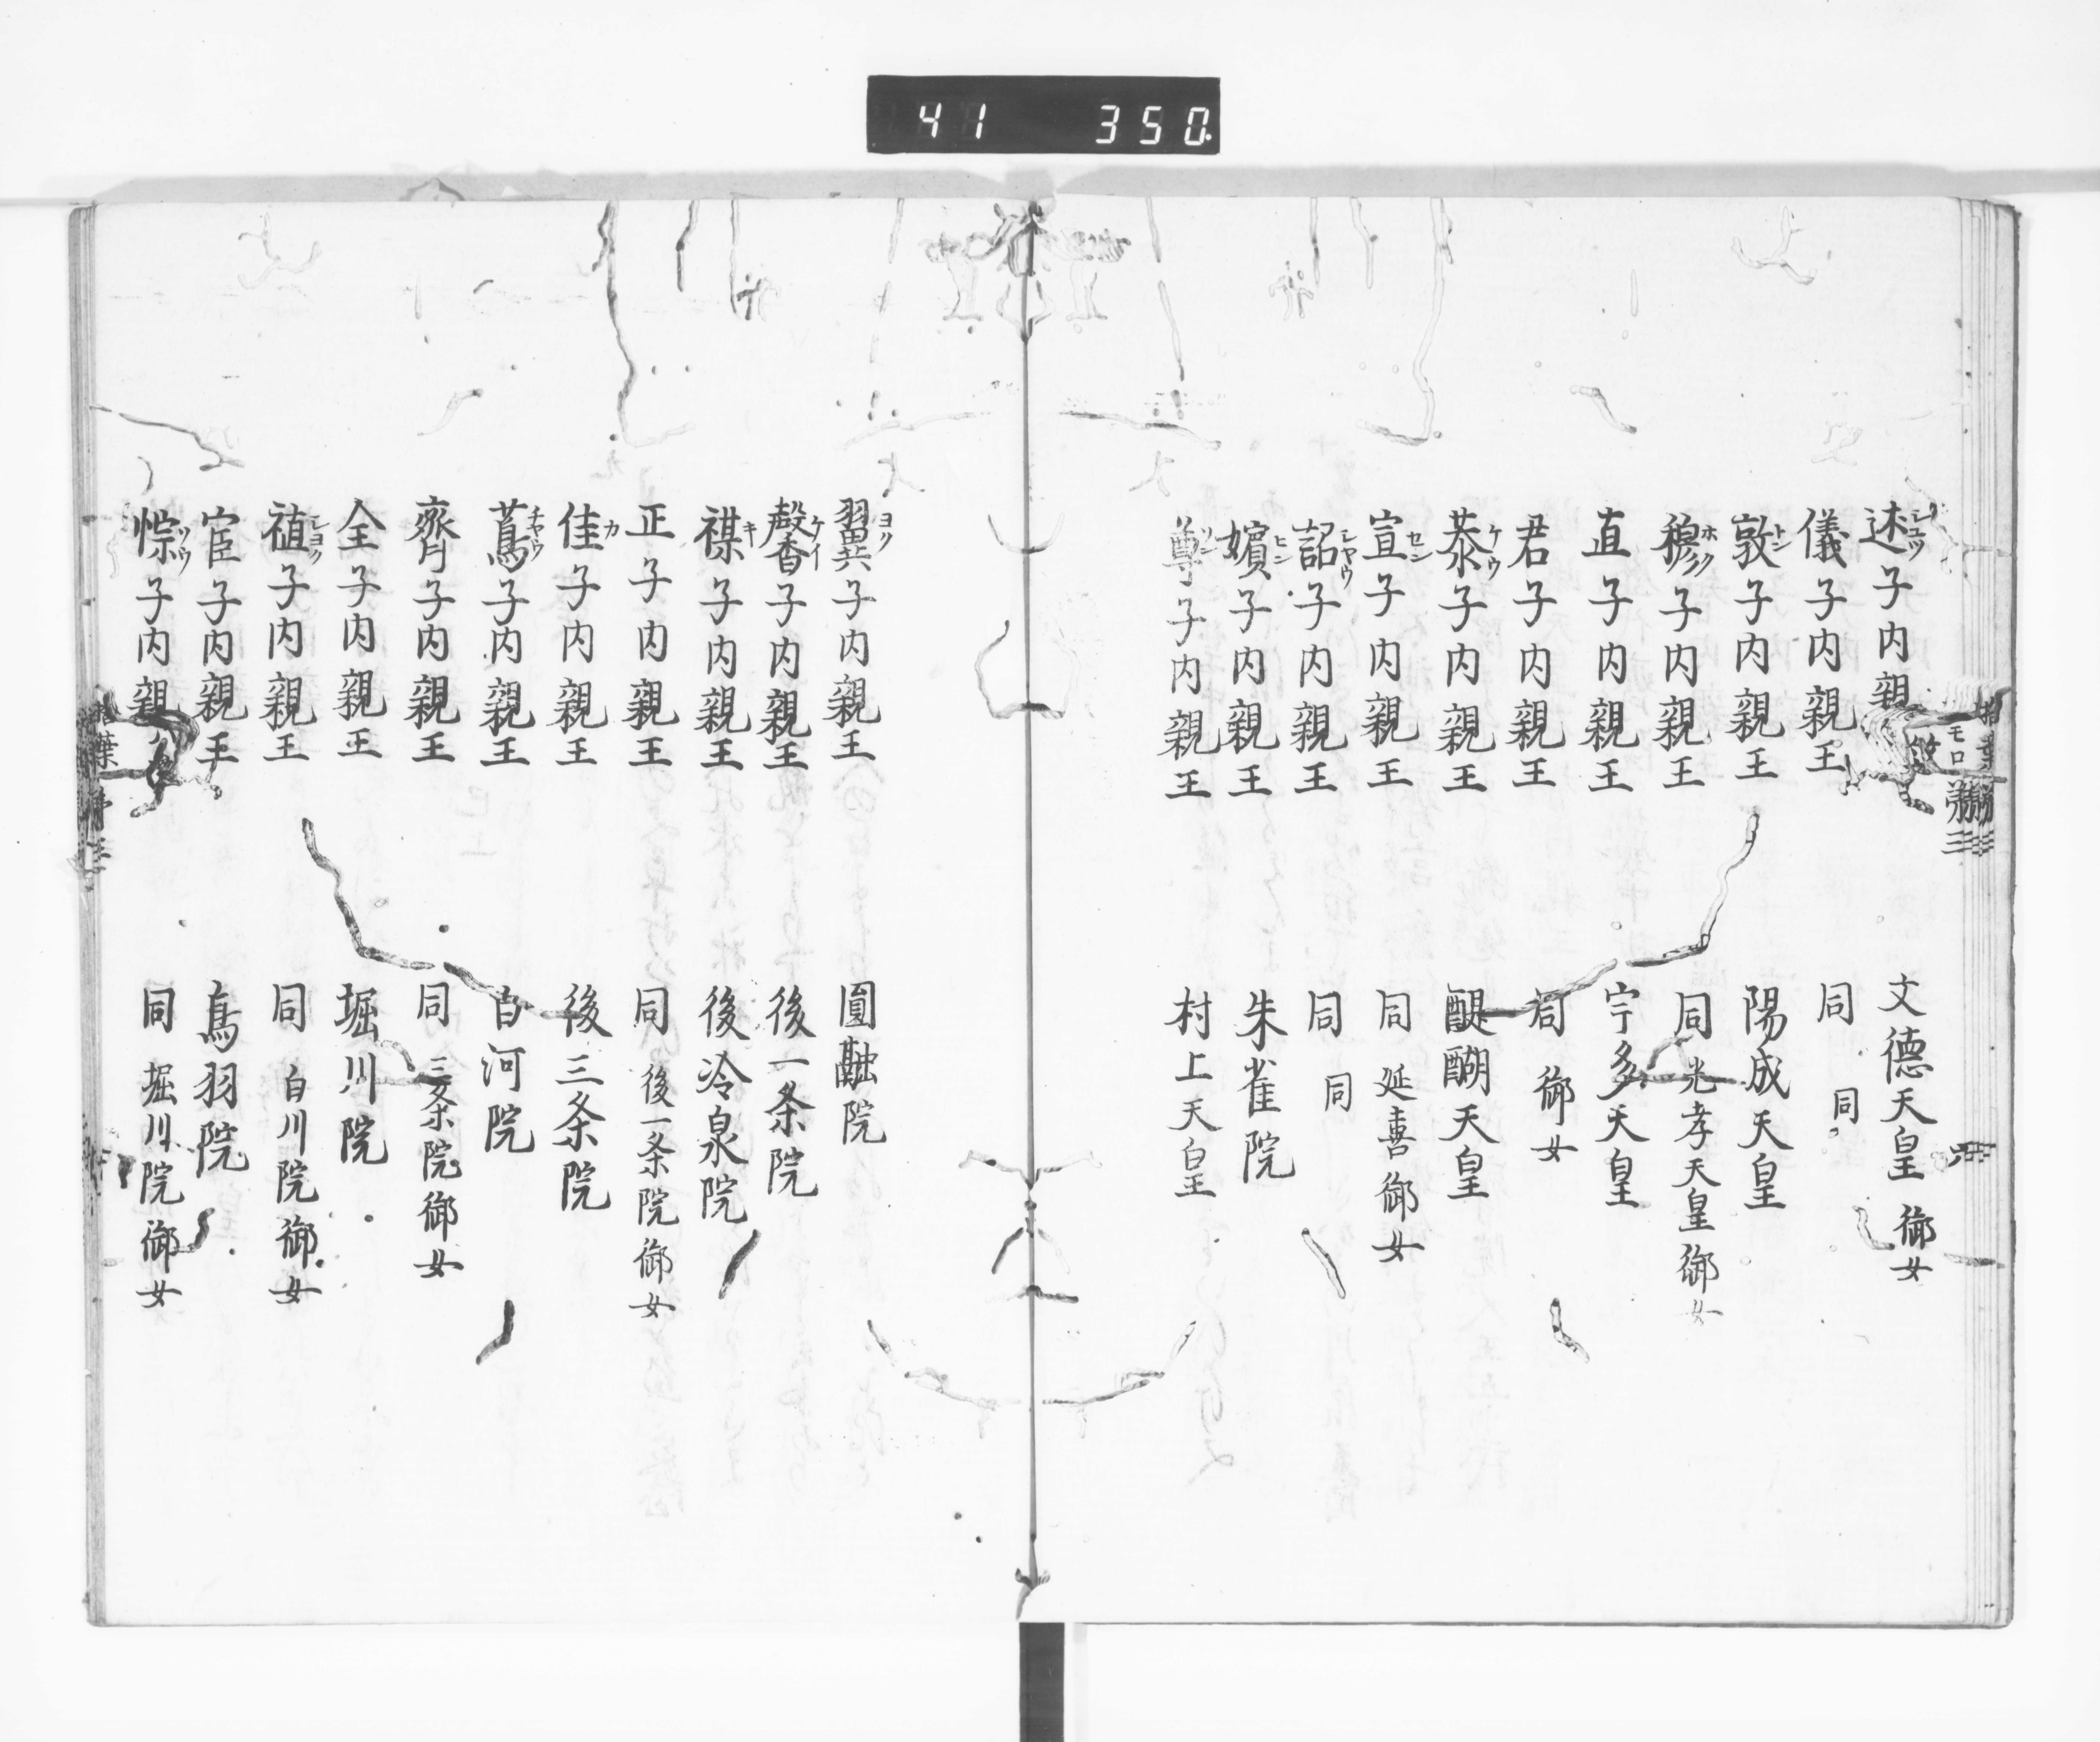 41 350
述子内親 文德天皇 御女
儀子内親王 同 同
敦子内親王 陽成天皇
穆子内親王 同 光孝天皇御女
直子内親王 宇多天皇
君子内親王 同 御女
恭子内親王 醍醐天皇
宣子内親王 同 延喜御女
詔子内親王 同 同
嬪子内親王 朱雀院
尊子内親王 村上天皇
翼子内親王 圓融院
馨子内親王 後一条院
禖子内親王 後冷泉院
正子内親王 同 後一条院御女
佳子内親王 後三条院
蔦子内親王 白河院
齊子内親王 同 三条院御女
全子内親王 堀川院
禃子内親王 同 白川院御女
宦子内親王 鳥羽院
悰子内親 同 堀川院御女